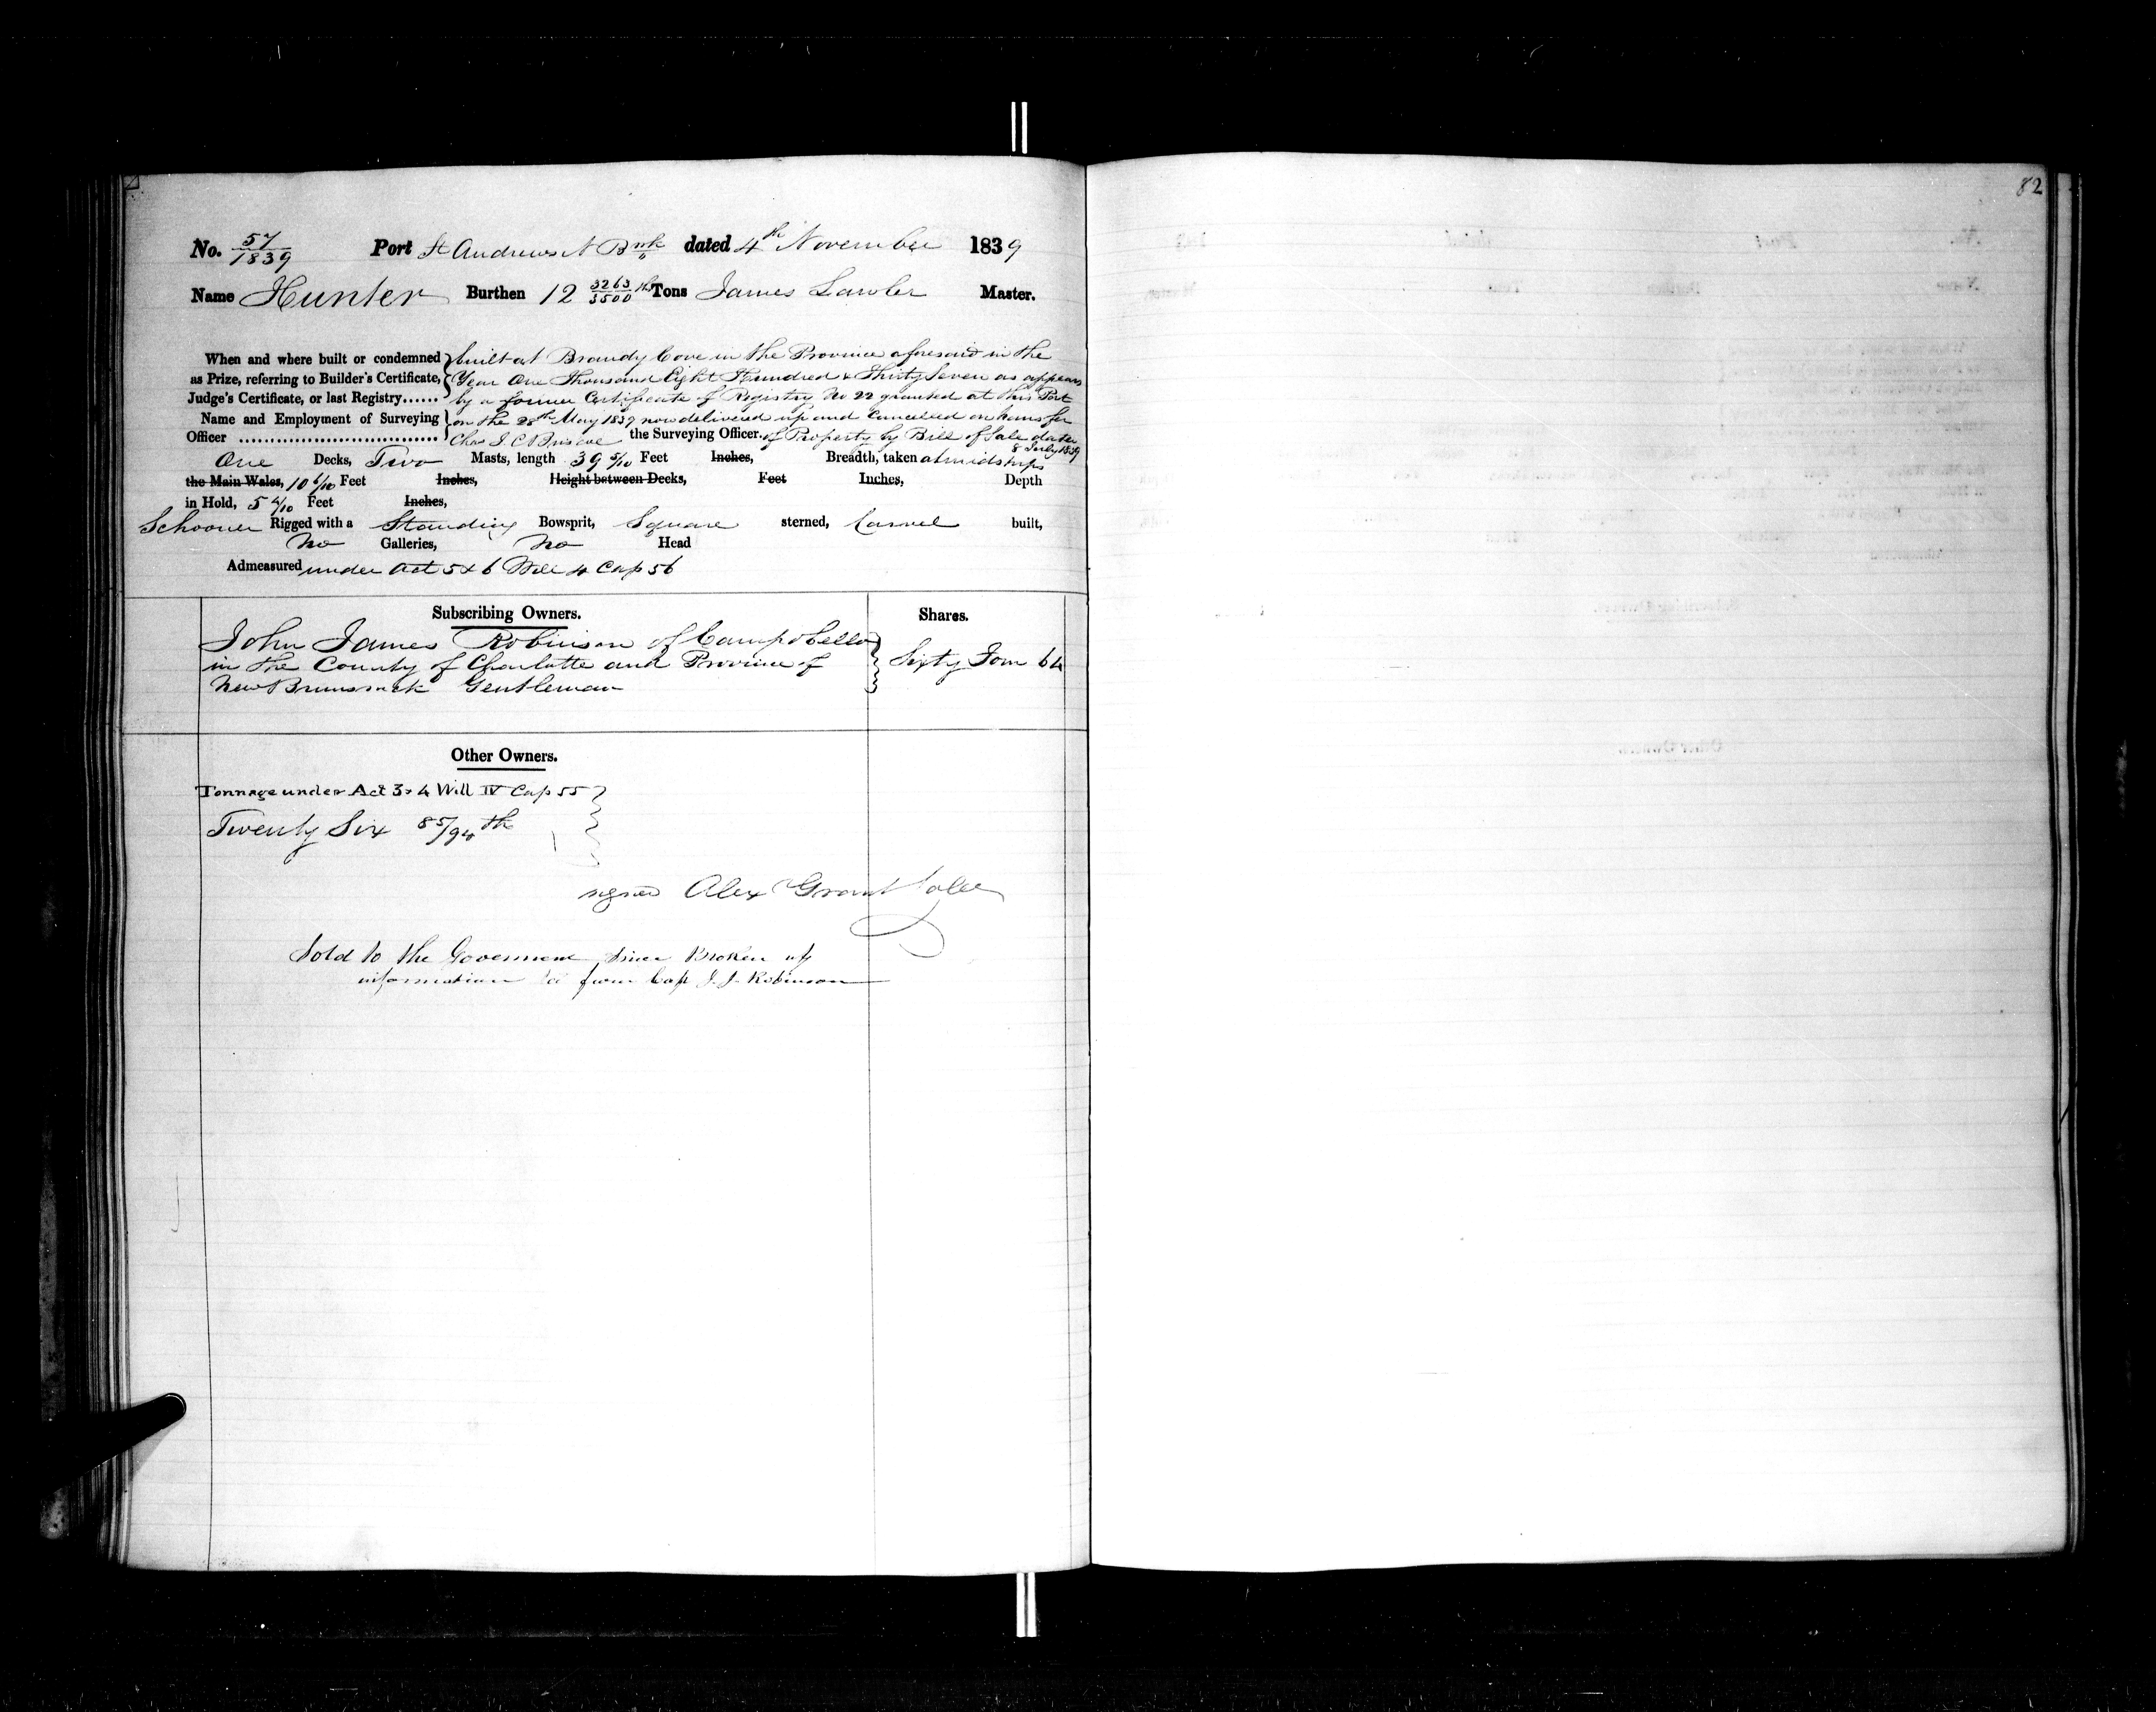 82
No. 57/1839 Port St Andrews N Bwk dated 4th November 1839
Name Hunter Burthen 12 3263/3500ths Tons James Lawler Master.
When and where built or condemned as Prize, referring to Builder's Certificate, Judge's Certificate, or last Registry......
built at Brandy Cove in the Province aforesaid in the
Year One Thousand Eight Hundred & Thirty Seven as appears
by a former Certificate of Registry No 22 granted at this Port
on the 28th May 1839 now delivered up and Cancelled on transfer
of Property by Bill of Sale date
8 July 1839
Name and Employment of Surveying Officer ................................ Chas J. C Briscoe the Surveying Officer.
One Decks, Two Masts, length 39 5/10 Feet Inches, Breadth, taken atmidships
the Main Wales, 10 6/10 Feet Inches, Height between Decks, Feet Inches, Depth
in Hold, 5 4/10 Feet Inches,
Schooner Rigged with a Standing Bowsprit, Square sterned, Carvel built,
No Galleries, No Head
Admeasured under Act 5 & 6 Will 4 Cap 56
Subscribing Owners. Shares.
John James Robinson of Campobello
in the County of Charlotte and Province of Sixty Four 64
New Brunswick Gentleman
Other Owners.
Tonnage under Act 3 & 4 Will IV Cap 55
Twenty Six 85/94th
signed Alex Grant
Sold to the Goverment since Broken up
information from Cap J. J. Robinson